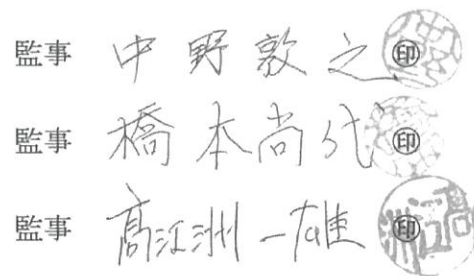 監事 中野敦之 ㊞
監事 橋本尚代 ㊞
監事 髙江洲一雄 ㊞